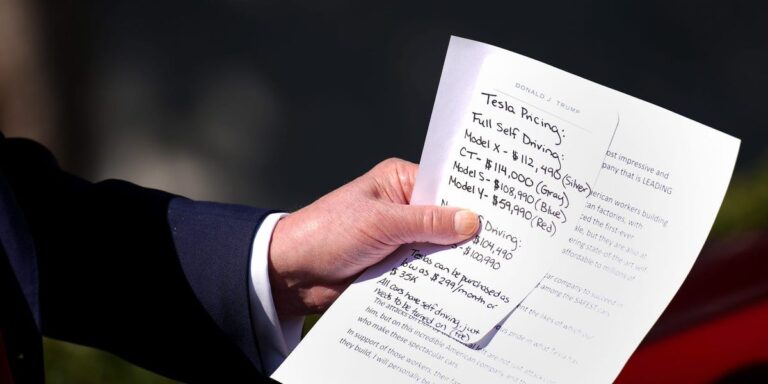 DONALD J. TRUMP
Tesla Pricing:
Full Self Driving:
Model X - $112,490 (Silver)
CT - $114,000 (Gray)
Model S - $108,990 (Blue)
Model Y - $59,990 (Red)
Self Driving:
$104,490
$100,990
Teslas can be purchased as
low as $299/month or
$35K
All cars have self driving, just
needs to be turned on
ost impressive and
pany that is LEADING
merican workers building
an factories, with
ced the first-ever
le, but they are also at
ering state-of-the-art self
affordable to millions of
company to succeed in
among the SAFEST cars
the likes of which
is pride in what Tesla has
The attacks on
are not just attacks
him, but on this incredible American company, and the
who make these spectacular cars.
In support of those workers, their
they build, I will personally be